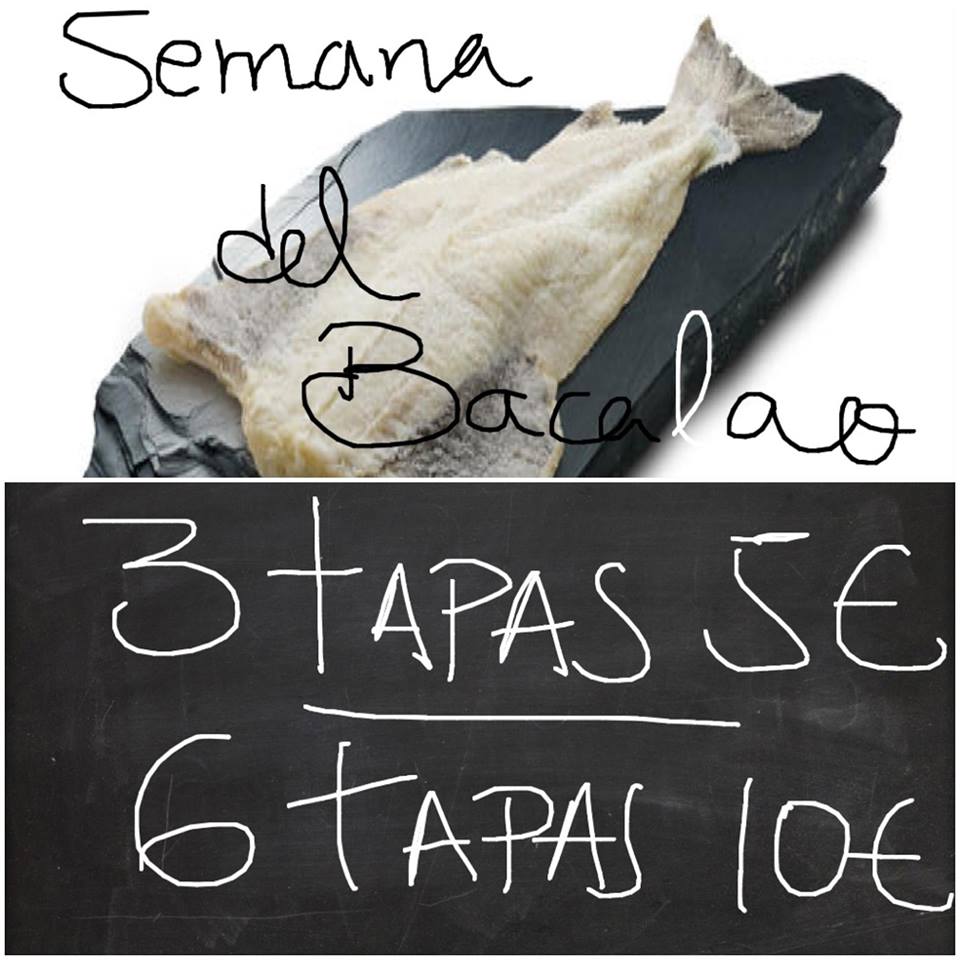 Semana
del
Bacalao
3 tAPAS 5€
6 tAPAS 10€